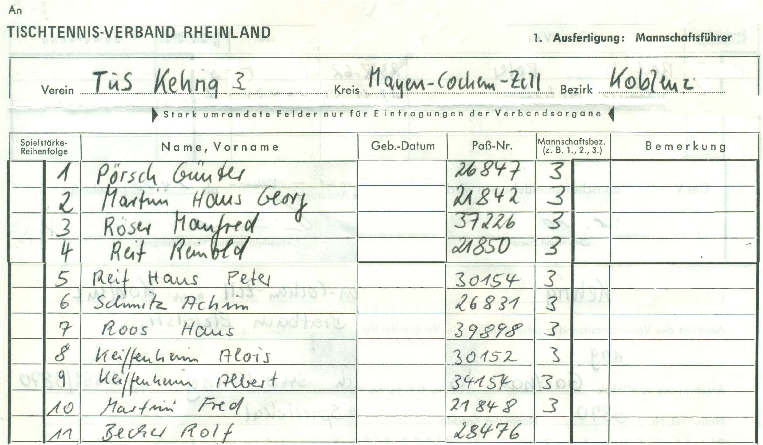 An
TISCHTENNIS-VERBAND RHEINLAND
1. Ausfertigung: Mannschaftsführer
Verein TuS Kehrig 3 Kreis Mayen-Cochem-Zell Bezirk Koblenz
Stark umrandete Felder nur für Eintragungen der Verbandsorgane
Spielstärke-Reihenfolge Name, Vorname Geb.-Datum Paß-Nr. Mannschaftsbez. (z. B. 1., 2., 3.) Bemerkung
1 Pörsch Günter 26847 3
2 Martini Hans Georg 21842 3
3 Röser Manfred 37226 3
4 Reif Reinold 21850 3
5 Reif Hans Peter 30154 3
6 Schmitz Achim 26831 3
7 Roos Hans 39898 3
8 Keiffenheim Alois 30152 3
9 Keiffenheim Albert 34154 3
10 Martini Fred 21848 3
11 Becher Rolf 28476